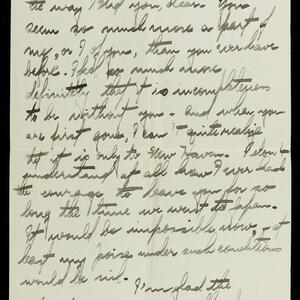 the way I did you, dear. You
seem so much more a part of
me, or I of you, than you ever have
before. I feel so much more
definitely that it is incompleteness
to be without you - and when you
are first gone, I can't quite realize
it is only to New Haven. I don't
understand at all how I ever had
the courage to leave you for so
long the time we went to Japan.
It would be impossible now, - at
least my poise under such conditions
would be nil.
I'm glad the